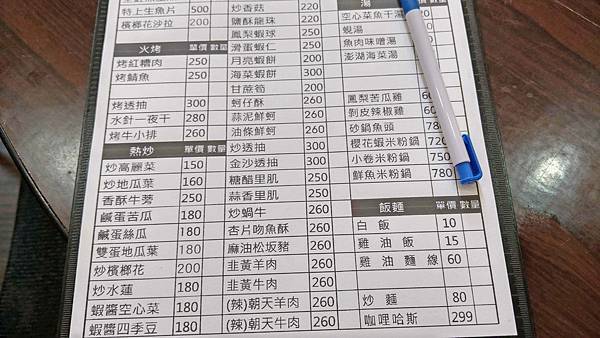 特上生魚片 500
檳榔花沙拉 200
火烤 單價 數量
烤紅糟肉 250
烤鯖魚 250
烤透抽 300
水針一夜干 280
烤牛小排 260
熱炒 單價 數量
炒高麗菜 150
炒地瓜葉 160
香酥牛蒡 250
鹹蛋苦瓜 180
鹹蛋絲瓜 180
雙蛋地瓜葉 180
炒檳榔花 200
炒水蓮 180
蝦醬空心菜 180
蝦醬四季豆 180
炒香菇 220
鹽酥龍珠 220
鳳梨蝦球 250
滑蛋蝦仁 250
月亮蝦餅 200
海菜蝦餅 260
甘蔗筍 200
蚵仔酥 260
蒜泥鮮蚵 260
油條鮮蚵 260
炒透抽 300
金沙透抽 300
糖醋里肌 250
蒜香里肌 250
炒蝸牛 260
杏片吻魚酥 260
麻油松坂豬 260
韭黃羊肉 260
韭黃牛肉 260
(辣)朝天羊肉 260
(辣)朝天牛肉 260
湯 單價 數量
空心菜魚干湯
蜆湯
魚肉味噌湯
澎湖海菜湯
鳳梨苦瓜雞
剝皮辣椒雞
砂鍋魚頭
櫻花蝦米粉鍋 720
小卷米粉鍋 750
鮮魚米粉鍋 780
飯麵 單價 數量
白飯 10
雞油飯 15
雞油麵線 60
炒麵 80
咖哩哈斯 299